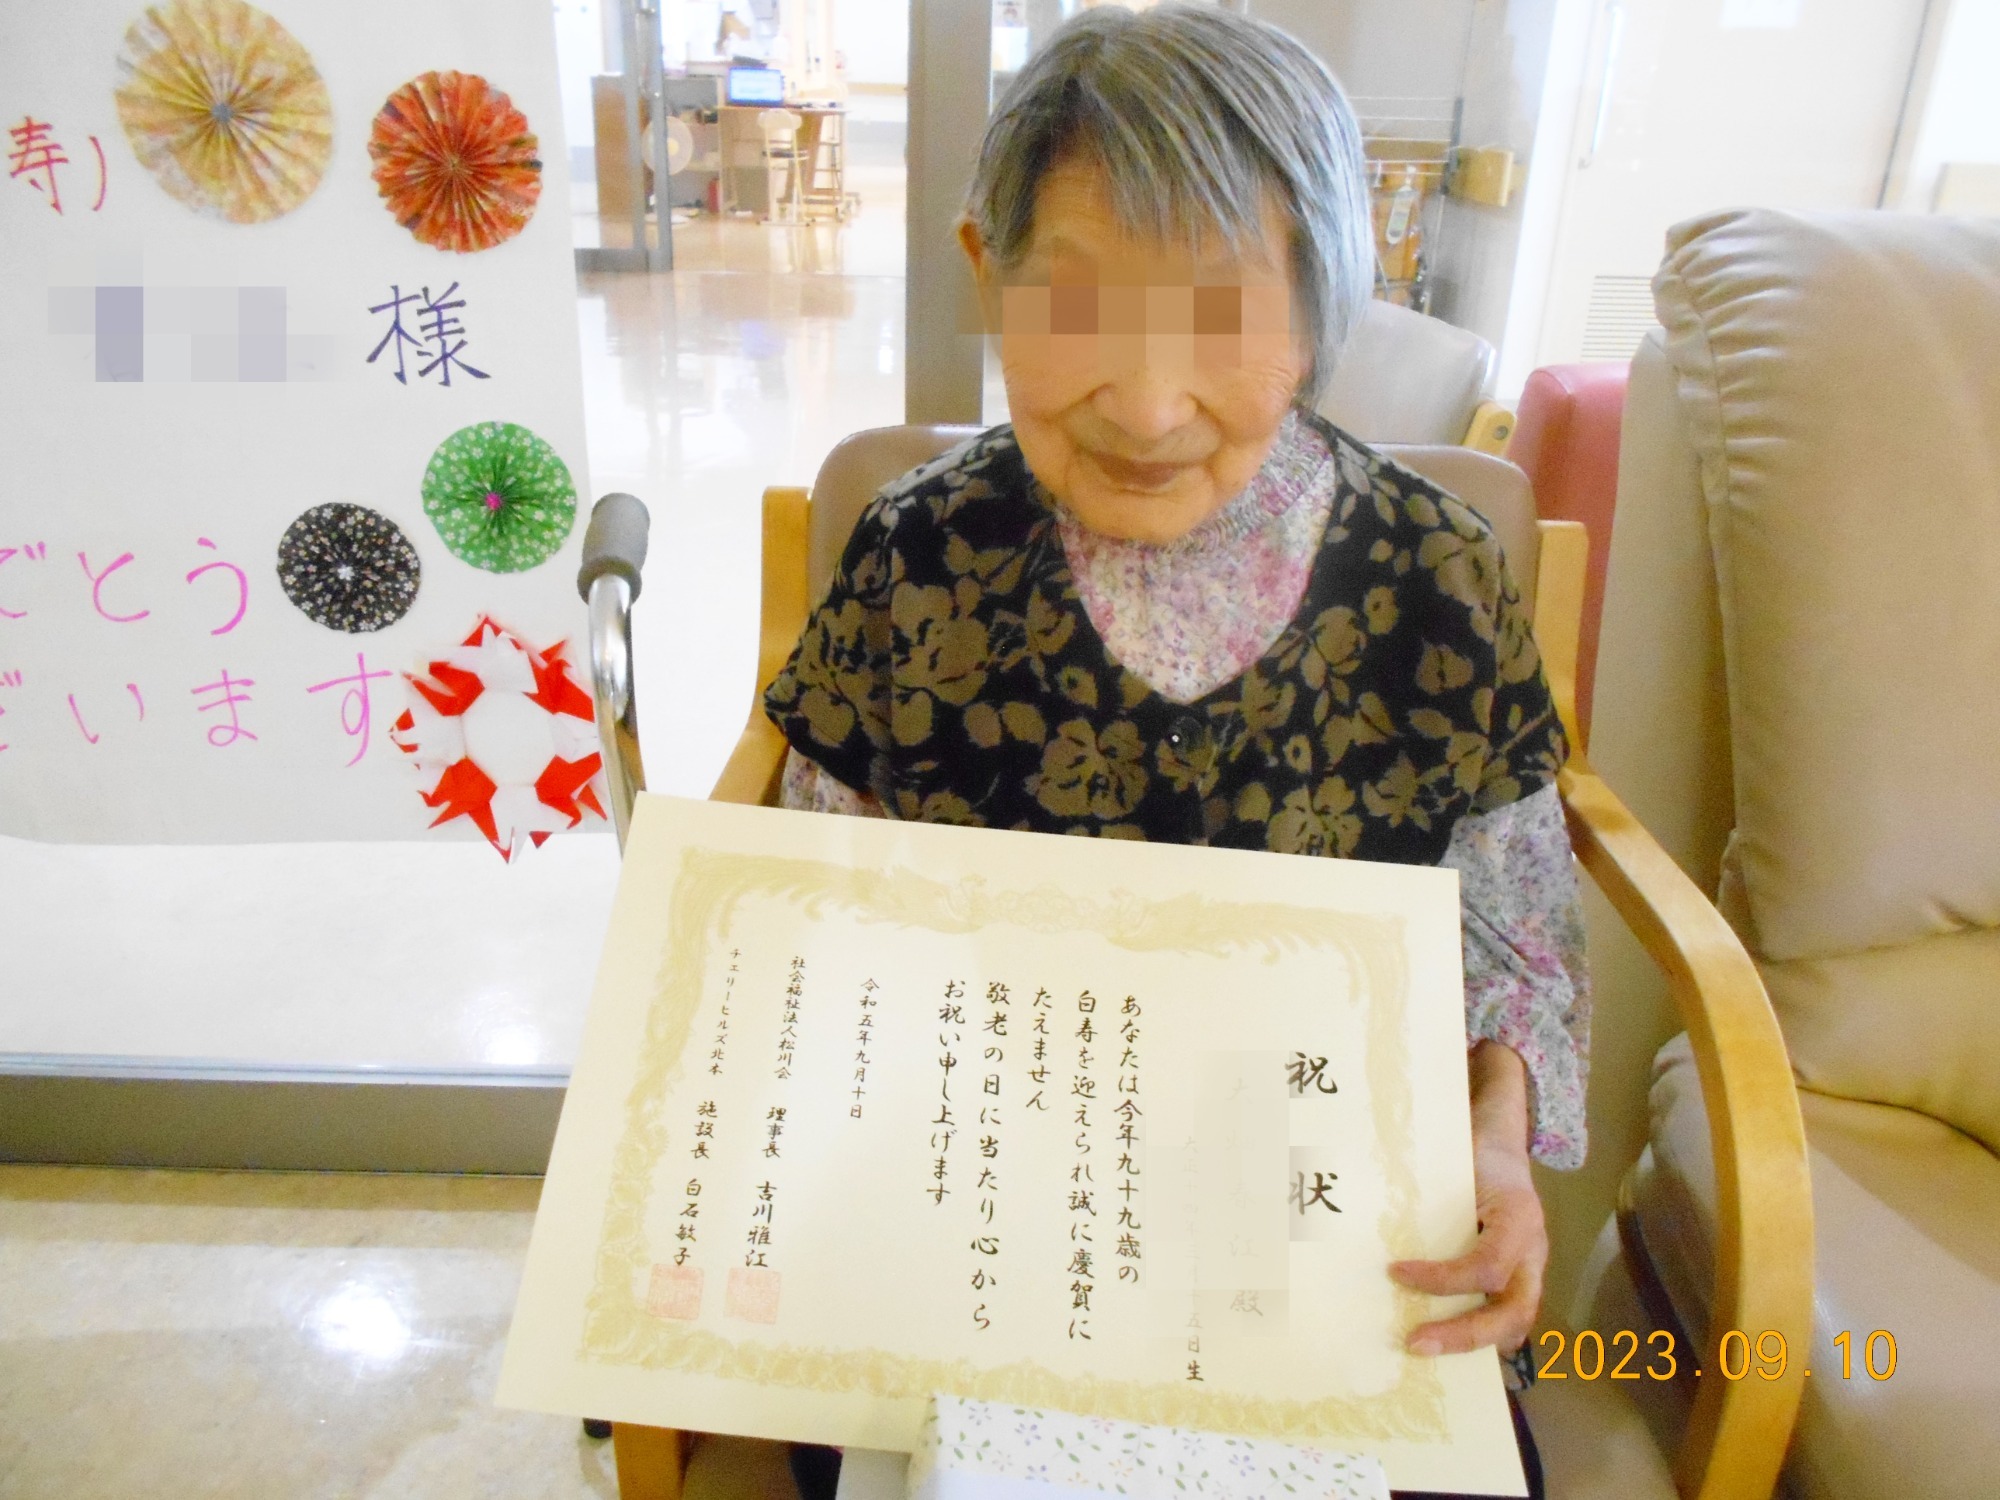 寿)
様
でとう
ざいます
祝状
殿
五日生
あなたは今年九十九歳の
白寿を迎えられ誠に慶賀に
たえません
敬老の日に当たり心から
お祝い申し上げます
令和五年九月十日
社会福祉法人松川会 理事長 吉川雅江
チェリーヒルズ北本 施設長 白石敏子
2023.09.10